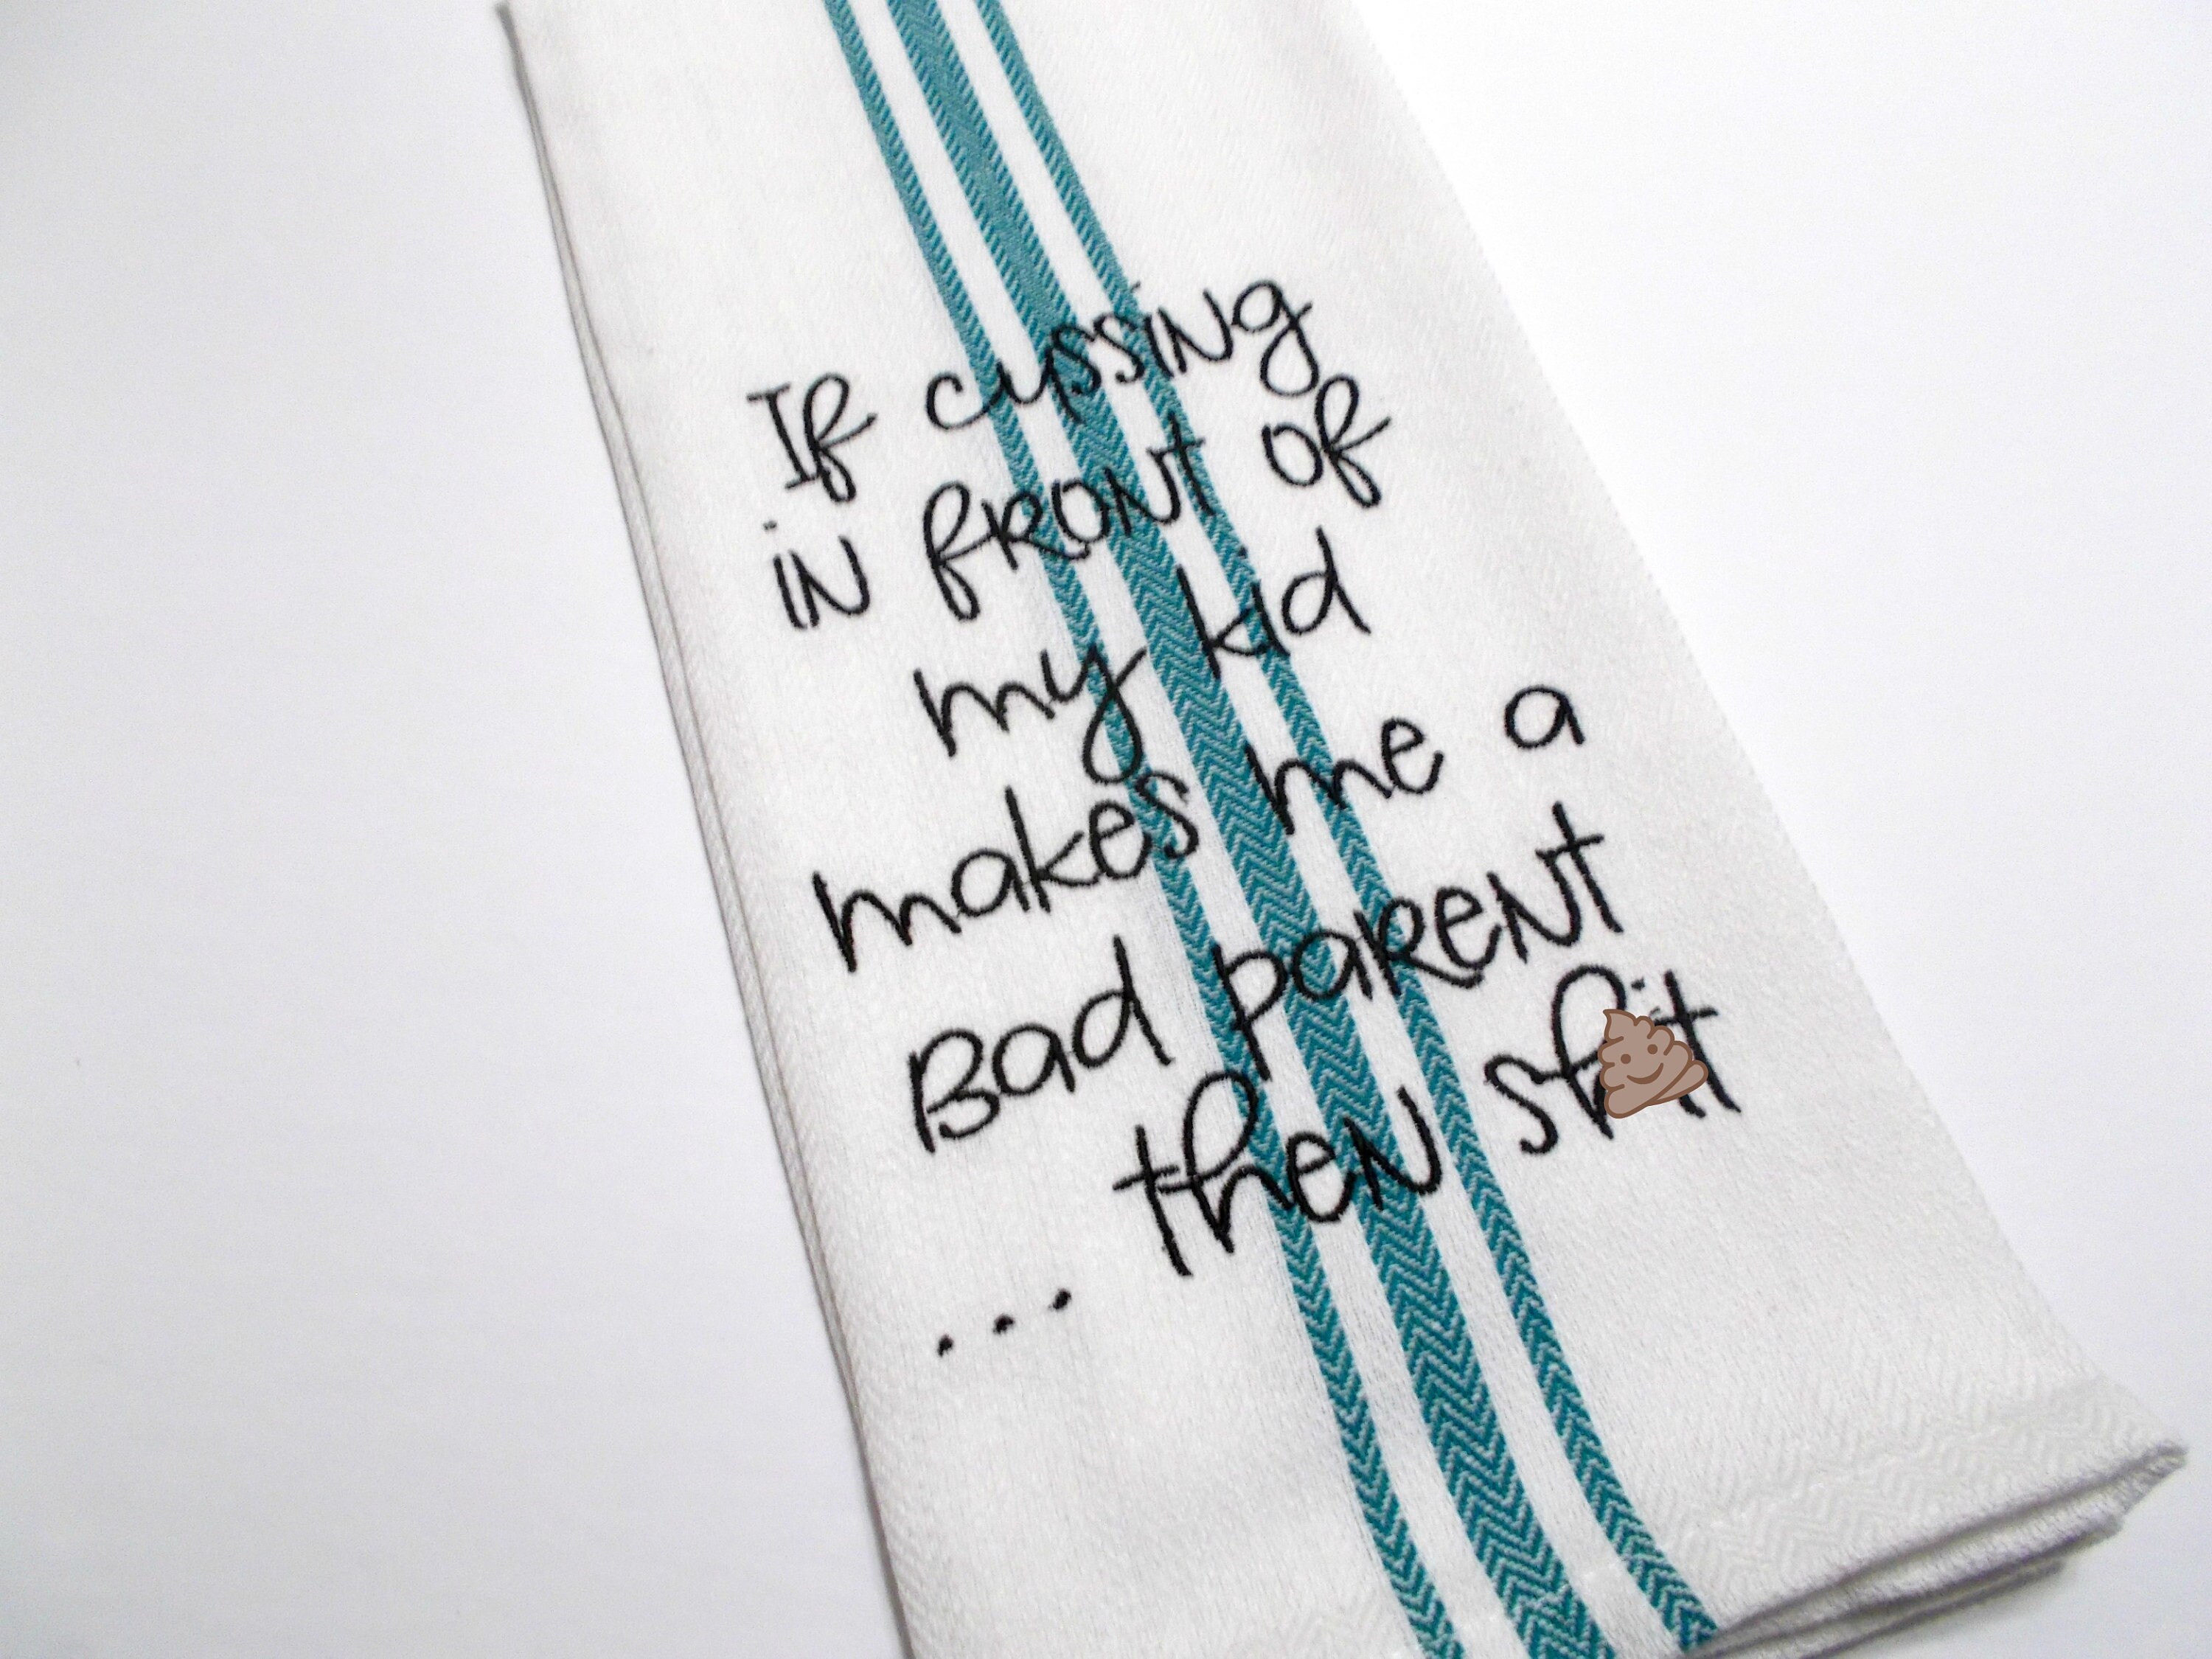 If cussing
in front of
my kid
makes me a
Bad parent
then shit
...